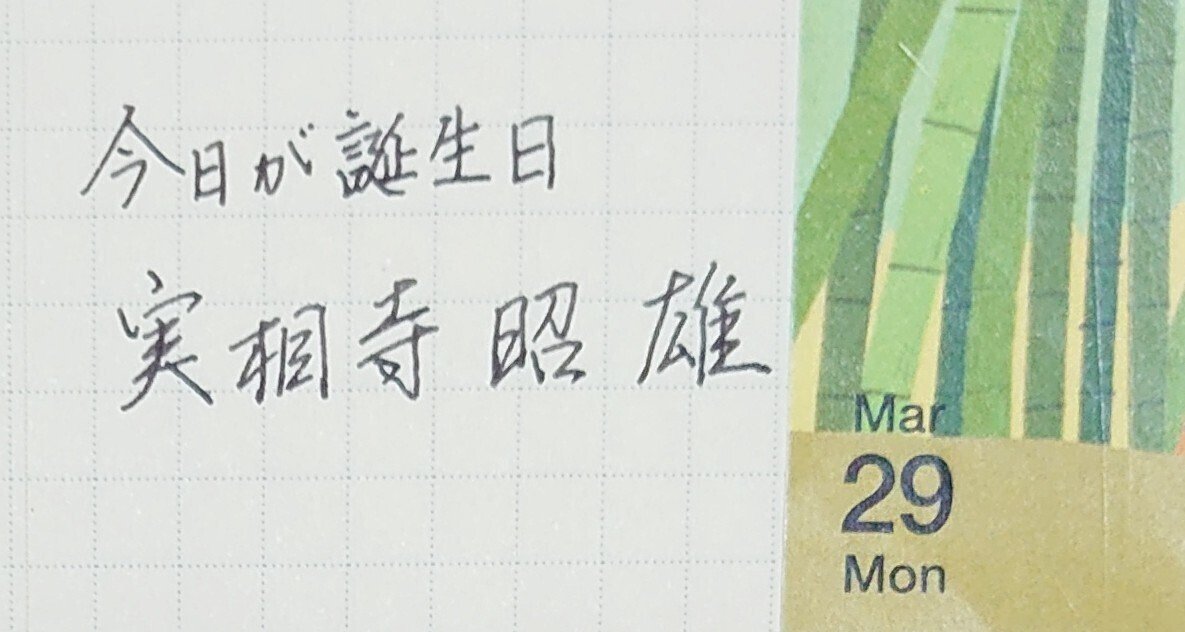 今日が誕生日
実相寺昭雄
Mar
29
Mon